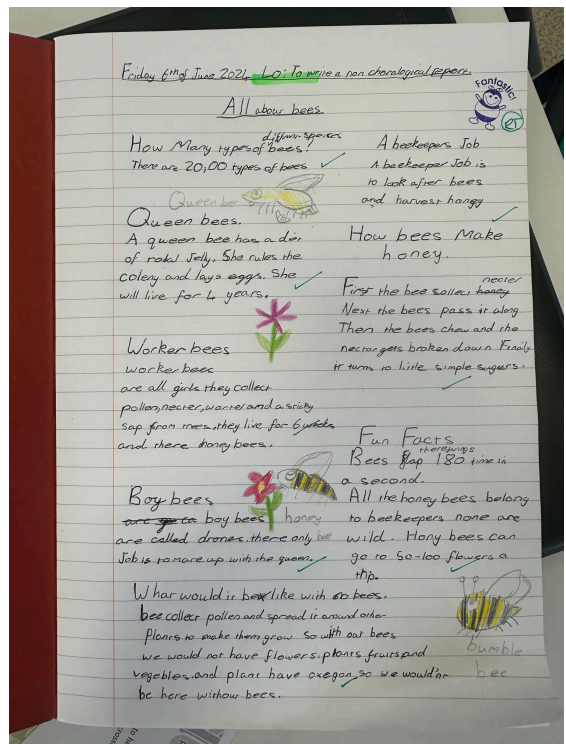 Friday 6th of June 2024 LO: To write a non choralogical report.
Fantastic!
RT
All abour bees
How Many types of bees?
There are 20,00 types of bees
Queen bee
Queen bees.
A queen bee has a dier
of rotal Jelly. She rules the
coleny and lays eggs. She
will live for 4 years.
Worker bees
worker bees
are all girls they collect
pollen, necter, warter and a sticky
sap from trees. they live for 6 weeks
and there honey bees.
Boy bees
boy bees
are called drones. there only
Job is to mare up with the queen.
honey
bee
A beekeepers Job
A beekeeper Job is
to look after bees
and harvest honey
How bees Make
honey.
necter
First the bee sollect honey
Next the bees pass it along
Then the bees chew and the
nector gets broken down Finaly
it turns to little simple sugars.
Fun Facts
there wings
Bees flap 180 time in
a second.
All the honey bees belong
to beekeepers none are
wild. Hony bees can
go to 50-100 flowers a
trip.
Whar would it be like with no bees.
bee collect pollen and spread it around other
Plants to make them grow so with out bees
we would not have flowers, plants fruits and
vegebles. and plant have oxegon so we would'nt
be here withour bees.
bumble
bee